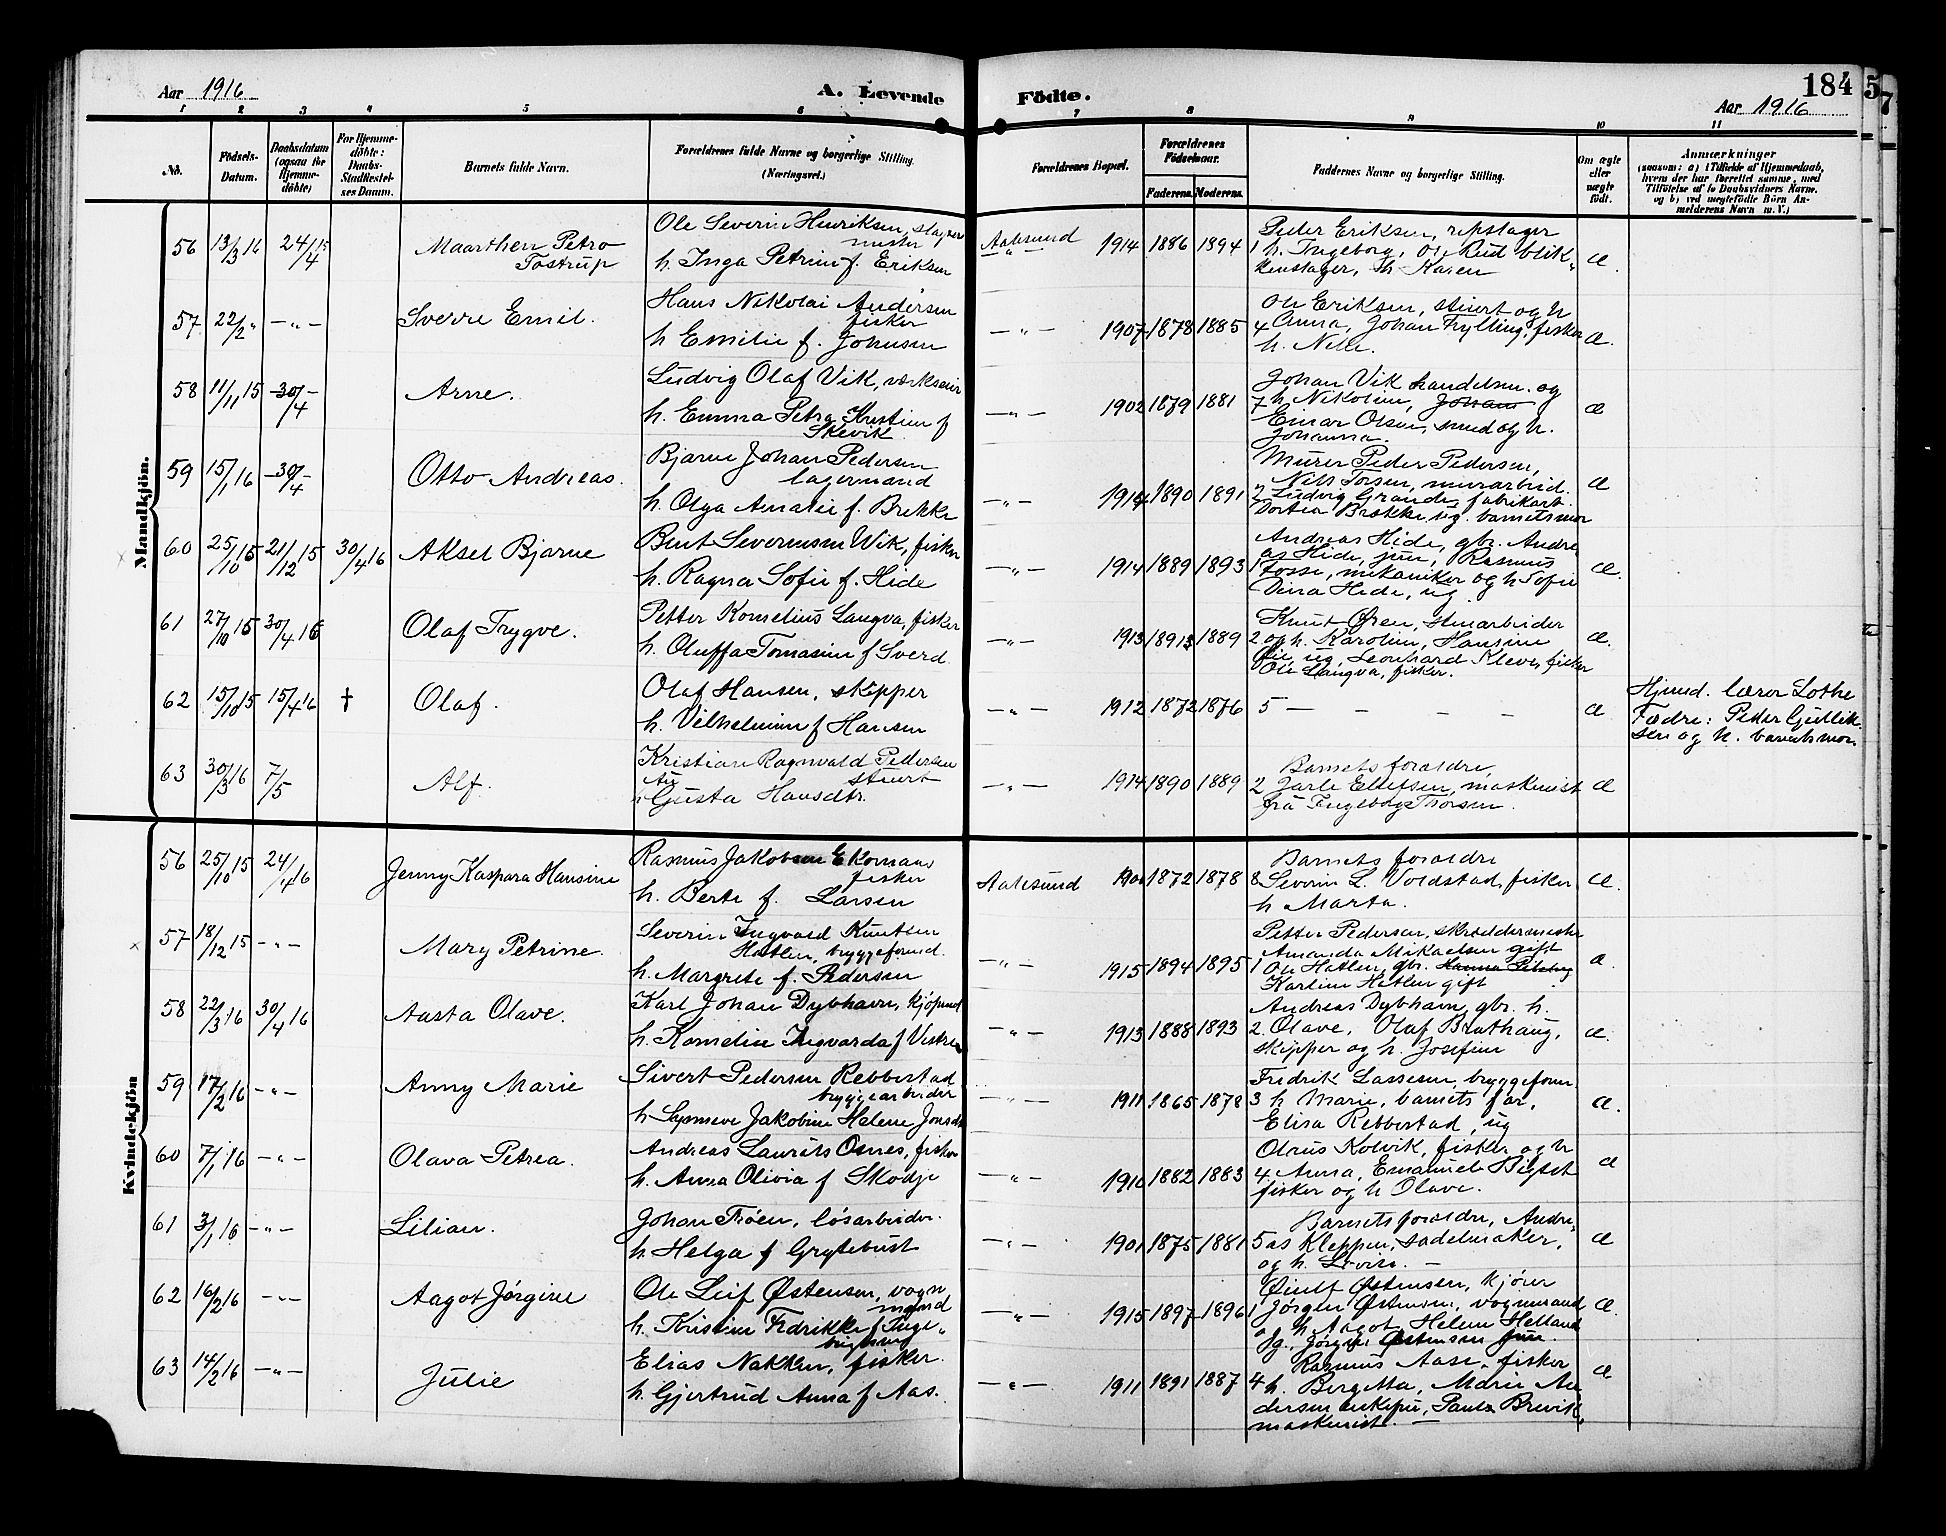 Aar 1916
A. Levende
Födte.
184
5
7
Aar 1916
1 2 3 4 5 6 7 8 9 10 11
No.
Födsels-
Datum.
Daabsdatum
(ogsaa for
Hjemme-
döbte)
For Hjemme-
döbte:
Daabs-
Stadfæstel-
ses Datum.
Barnets fulde Navn.
Forældrenes fulde Navne og borgerlige Stilling.
(Næringsvei.)
Forældrenes Bopæl.
Forældrenes
Födselsaar.
Faderens. Moderens.
Faddernes Navne og borgerlige Stilling.
Om ægte
eller
uægte
födt.
Anmærkninger
(saasom: a) i Tilfælde af Hjemmedaab,
hvem der har forrettet samme, med
Tilföielse af to Daabsvidners Navne.
og b) ved uægtefödte Börn An-
melderens Navn m. V.)
Mandkjön.
56 13/3 16 24/4
Maarthen Petro
Tostrup
Ole Severin Henriksen,
h. Inga Petrine f. Eriksen
Aalesund 1914 1886 1894 1
Peder Eriksen, repslager
h. Ingeborg, Ole Rud blik-
kenslager, h Karen
æ.
57 22/2 " — " —
Sverre Emil.
Hans Nikolai Andersen
fisker
h Emilie f. Johnsen
— " — 1907 1878 1885 4
Ole Eriksen, stuert og h
Anna, Johan Frylling, fisker
h. Nelle.
æ.
58 11/11 15 30/4
Arne.
Ludvig Olaf Vik, værkseier
h. Emma Petra Kristine f
Skevik
— " — 1902 1879 1881 7
Johan Vik handelsm. og
h Nikoline,
Einar Olsen, smed og h.
Johanna.
æ
59 15/1 16 30/4
Otto Andreas.
Bjarne Johan Pedersen
lagermand
h. Olga Amalie f. Brekke
— " — 1914 1890 1891 2
Murer Peder Pedersen,
Nils Torsen, murarbeid.
Ludvig Grande, fabrikarb.
Dortea Brække ug. barnetsmor
æ
60 25/10 15 21/12 15 30/4 16
Aksel Bjarne
Bent Severinsen Wik, fisker
h. Ragna Sofie f. Hide
— " — 1914 1889 1893 1
Andreas Hide, gbr. Andre
as Hide, jun, Rasmus
Fosse, mekaniker og h Sofie
Hide, ug
æ.
61 27/10 15 30/4 16
Olaf Trygve.
Petter Kornelius Langva, fisker
h. Oluffa Tomasine f Sverd
— " — 1913 1891 1889 2
Knut Øren, stenarbeider
og h. Karoline, Hansine
ug, Leonhard Kleve, fisker
Ole Langva, fisker.
æ.
62 15/10 15 15/4 16 †
Olaf.
Olaf Hansen, skipper
h. Vilhelmine f Hansen
— " — 1912 1872 1876 5 — — — —
æ
Hjmd. lærer Lothe
Fædre: Peder Gullik
sen og h. barnets mor.
63 30/3 16 7/5
Alf.
Kristian Ragnvald Pedersen
stuert
Gusta Hansdtr.
— " — 1914 1890 1889 2
Barnets forældre
Jarle Ellefsen, maskinist
frå Ingeborg Thorsen.
æ
Kvindekjön
56 25/10 15 24/4 16
Jenny Kaspara Hansine
Rasmus Jakobsen Ekornaas
fisker
h. Berte f. Larsen
Aalesund 1872 1878 8
Barnets forældre
Severin L. Voldstad, fisker
h Marta.
æ.
57 18/12 15 — " —
Mary Petrine.
Severin Ingvald Knutsen
Hatlen, bryggeformd.
h. Margrete f. Pedersen
— " — 1915 1894 1895 1
Petter Pedersen, skræddermester
Amanda Mikaelsen gift
Ole Hatlen, gbr.
Karline Hatlen gift
æ.
58 22/3 16 30/4 16
Aasta Olave.
Karl Johan Dybhavn, kjøpmd
h. Kornelie Ingvarda f Vestre
— " — 1913 1888 1893 2
Andreas Dybhavn, gbr. h.
Olave, Olaf Brathaug,
skipper og h. Josefine
æ.
59 17/2 16 — " —
Anny Marie
Sivert Pedersen Rebbestad
bryggearbeider
h. Synneve Jakobine Helene Jonsdtr
— " — 1911 1865 1878 3
Fredrik Lassesen, bryggeform
h Marie, barnets far,
Elisa Rebbestad, ug
æ.
60 7/1 16 — " —
Olava Petrea.
Andreas Laurits Osnes, fisker
h. Anna Olivia f Skodje
— " — 1910 1882 1883 4
Olaus Kolvik, fisker og h
Anna, Emanuel Bigset
fisker og h Olave.
æ
61 3/1 16 — " —
Lilian.
Johan Trøen, løsarbeider.
h. Helga f Grytebust
— " — 1901 1875 1881 5
Barnets forældre, Andre-
as Kleppen, sadelmaker,
og h. Lovise. —
æ
62 16/2 16 — " —
Aagot Jørgine
Ole Leif Østensen, vogn
mand
h. Kristine Fredrikke f Inge-
brigtsen
— " — 1915 1897 1896 1
Østensen, kjører
Jørgen Østensen, vognmand
h Aagot Helene Helland
æ.
63 14/2 16 — " —
Julie
Elias Nakken, fisker.
h. Gjertrud Anna f Aas.
— " — 1911 1891 1887 4
Rasmus Aase, fisker
h. Bergitta, Marie An
dersen enkefru, Paul Brevik,
maskinist. —
æ